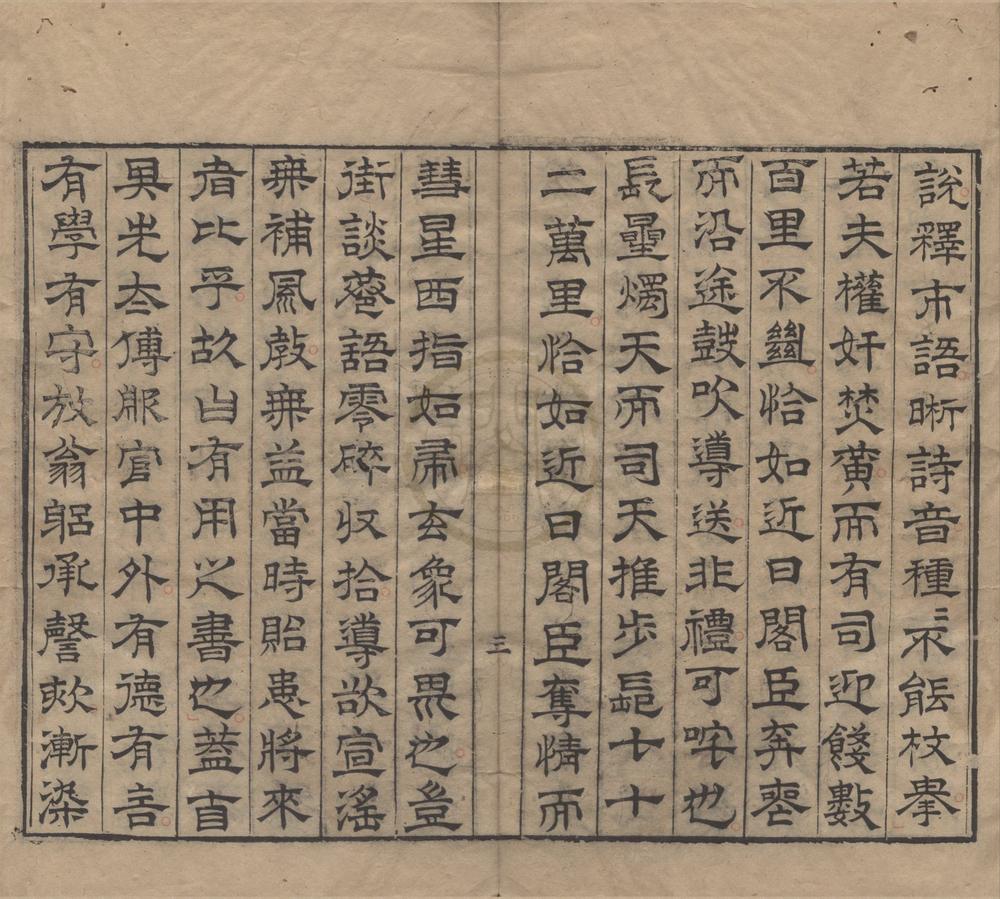 說釋市語晰詩音種〻不能枚擧
若夫權奸焚黃而有司迎餞數
百里不㡭恰如近日閣臣奔喪
而沿途鼓吹導送非禮可咤也
長星燭天而司天推步長七十
二萬里恰如近日閣臣奪情而
三
彗星西指如帚玄象可畏也豈
街談巷語零碎收拾導欲宣淫
無補風敎無益當時貽患將來
者比乎故自有用之書也蓋自
吳先太傅服官中外有德有言
有學有守放翁躬承謦欬漸染